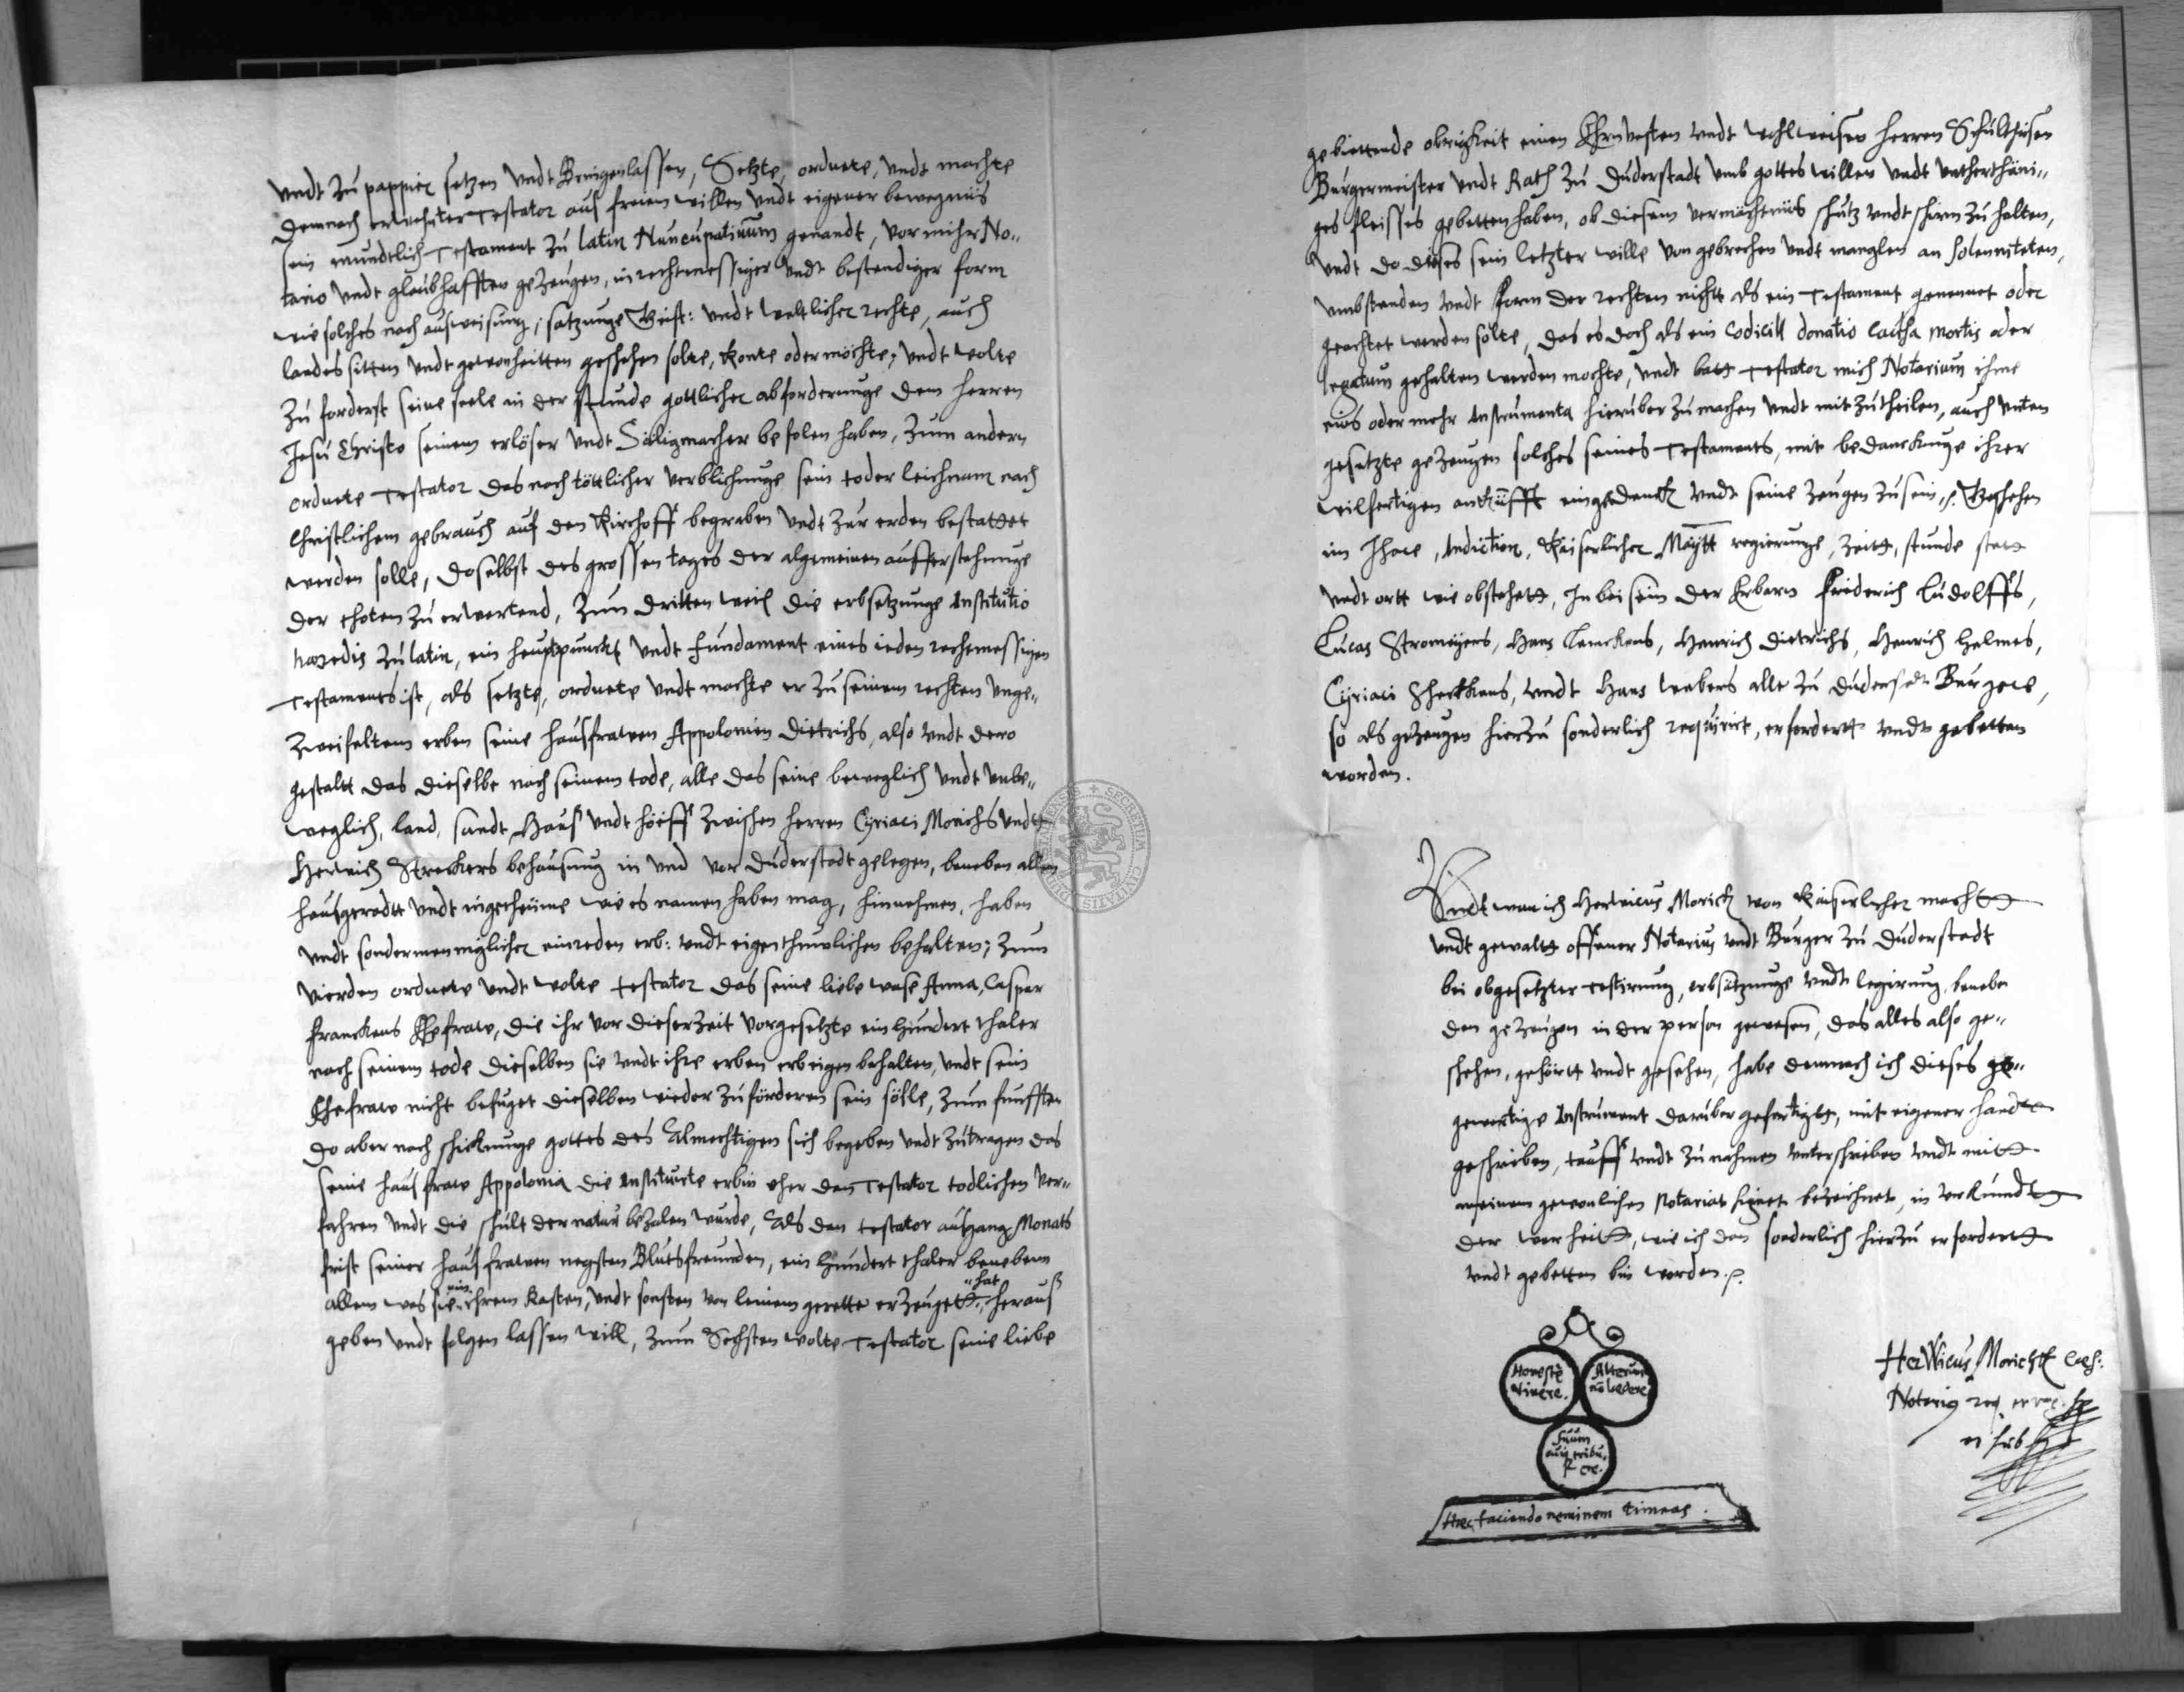 undt zu pappier setzen undt Bringen lassen, Setzte, ordnete, undt machte
demnach erwehnter Testator aus freiem willen undt eigener bewegnus
sein mundtlich Testament zu latin Nuncupativum genandt, vor mihr No„
tario undt glaubhafften gezeugen, in rechtmessiger undt bestendiger form
wie solches nach ausweisung, satzunge Geist: undt weltlicher rechte, auch
landes sitten undt gewonheitten geschehen solte, konte oder möchte, undt wolte
zu forderst seine seele in der stunde gottlicher abforderunge dem herren
Jesu Christo seinem erlöser undt Säligmacher befolen haben, zum andern
ordnete Testator das nach töttlicher verblichnuge sein toder leichnam nach
Christlichem gebrauch auf den Kirchoff begraben undt zur erden bestattet
werden solle, doselbst des grossen tages der algemeinen aufferstehunge
der thoten zu erwartend, zum dritten weil die erbsetzunge Institutio
haeredis zu latin, ein heuptpunckt undt fundament eines ieden rechtmessigen
Testaments ist, als setzte, ordnete undt machte er zu seinem rechten unge„
zweifeltem erben seine hausfrawen Appolonien Dietrichs, also undt dero
gestaltt das dieselbe nach seinem tode, alle das seine beweglich undt unbe„
weglich, land, sandt, Haus undt höeff zwischen herren Cyriaci Morichs undt
Herwich Streckers behausung in und vor Duderstadt gelegen, beneben allem
hausgeradtt undt ingetheume wie es namen haben mag, hinnehmen, haben
undt sonder menniglicher einreden erb: undt eigenthumlichen behalten; Zum
vierden ordnete undt wolte testator das seine liebe wase Anna, Caspar
Franckens Ehefraw, die ihr vor dieser zeit vorgesetzte ein hundert thaler
nach seinem tode dieselben sie undt ihre erben erbeigen behalten, undt sein
Ehefraw nicht befuget dieselben wieder zu förderen sein sölle, zum funfften
do aber nach schickunge gottes des Almechtigen sich begeben undt zutragen das
seine hausfraw Appolonia die Instituirte erbin eher den Testator todlichen ver„
fahren undt die schult der natur bezalen wurde, Als dan testator ausgang Monats
frist seiner hausfrawen negsten Blutsfreunden, ein hundert thaler benebenn
allem was sie in ihrem Kasten, undt sonsten von leinem gerette erzeugett hat, herauß
geben undt folgen lassen will, zum Sechsten wolte Testator seine liebe
gebiettende obrigkeit einen Ehrnvesten undt wohlweisen herren Schultheisen
Burgermeister undt Rath zu Duderstadt umb gottes willen undt unterthäni„
ges fleisses gebetten haben, ob diesem vermächtnüs schutz undt schirm zu halten,
undt do dieses sein letzter wille von gebrechen undt manglen an solenniteten,
umbstenden undt form der rechten nichtt als ein Testament genennet oder
geachtet werden solte, das es doch als ein Codicill donatio causa mortis oder
legatum gehalten werden mochte, undt batt Testator mich Notarium ihme
eins oder mehr Instrumenta hieruber zu machen undt mit zutheilen, auch unten
gesetzte gezeugen solches seines Testaments, mit bedanckunge ihrer
wilfertigen ankunfft eingedenck undt seine zeugen zu sein. Geschehen
im Jhare, Indiction, Kaiserlicher Maytt regierunge, zeitt, stunde statt
undt ortt wie obstehett, In bei sein der Erbarn Friderich Ludolffs,
Lucas Stromeyers, Hans Lenckens, Henrich Dietrichs, Henrich Helmes,
Cyriaci undt Hans Webers alle zu Duderstadt Burgere,
so als gezeugen hierzu sonderlich requirirt, erfordertt undt gebetten
worden.
Undt wan ich Herwicus Morich von Kaiserlicher machtt
undt gewaltt offener Notarius undt Burger zu Duderstadt
bei obgesetzter testirung, erbsatzunge undt legirung, beneben
den gezeugen in der person gewesen, das alles also ge„
schehen, gehörtt undt gesehen, habe demnach ich dieses ge„
gewertige Instrument daruber gefertiget, mit eigener handt
geschrieben, tauff undt zunahmen unterschrieben undt mitt
meinem gewonlichen Notariat signet bezeichnet, in urkundt
der warheitt, wie ich dan sonderlich hierzu erfordertt
undt gebetten bin worden.
Honestè
vivere.
Alterum
nō laedere
suum
cuiq tribu,
ere.
Haec faciendo neminem timeas.
HerWicus Morichh Caes:
Notarius req. et rog.